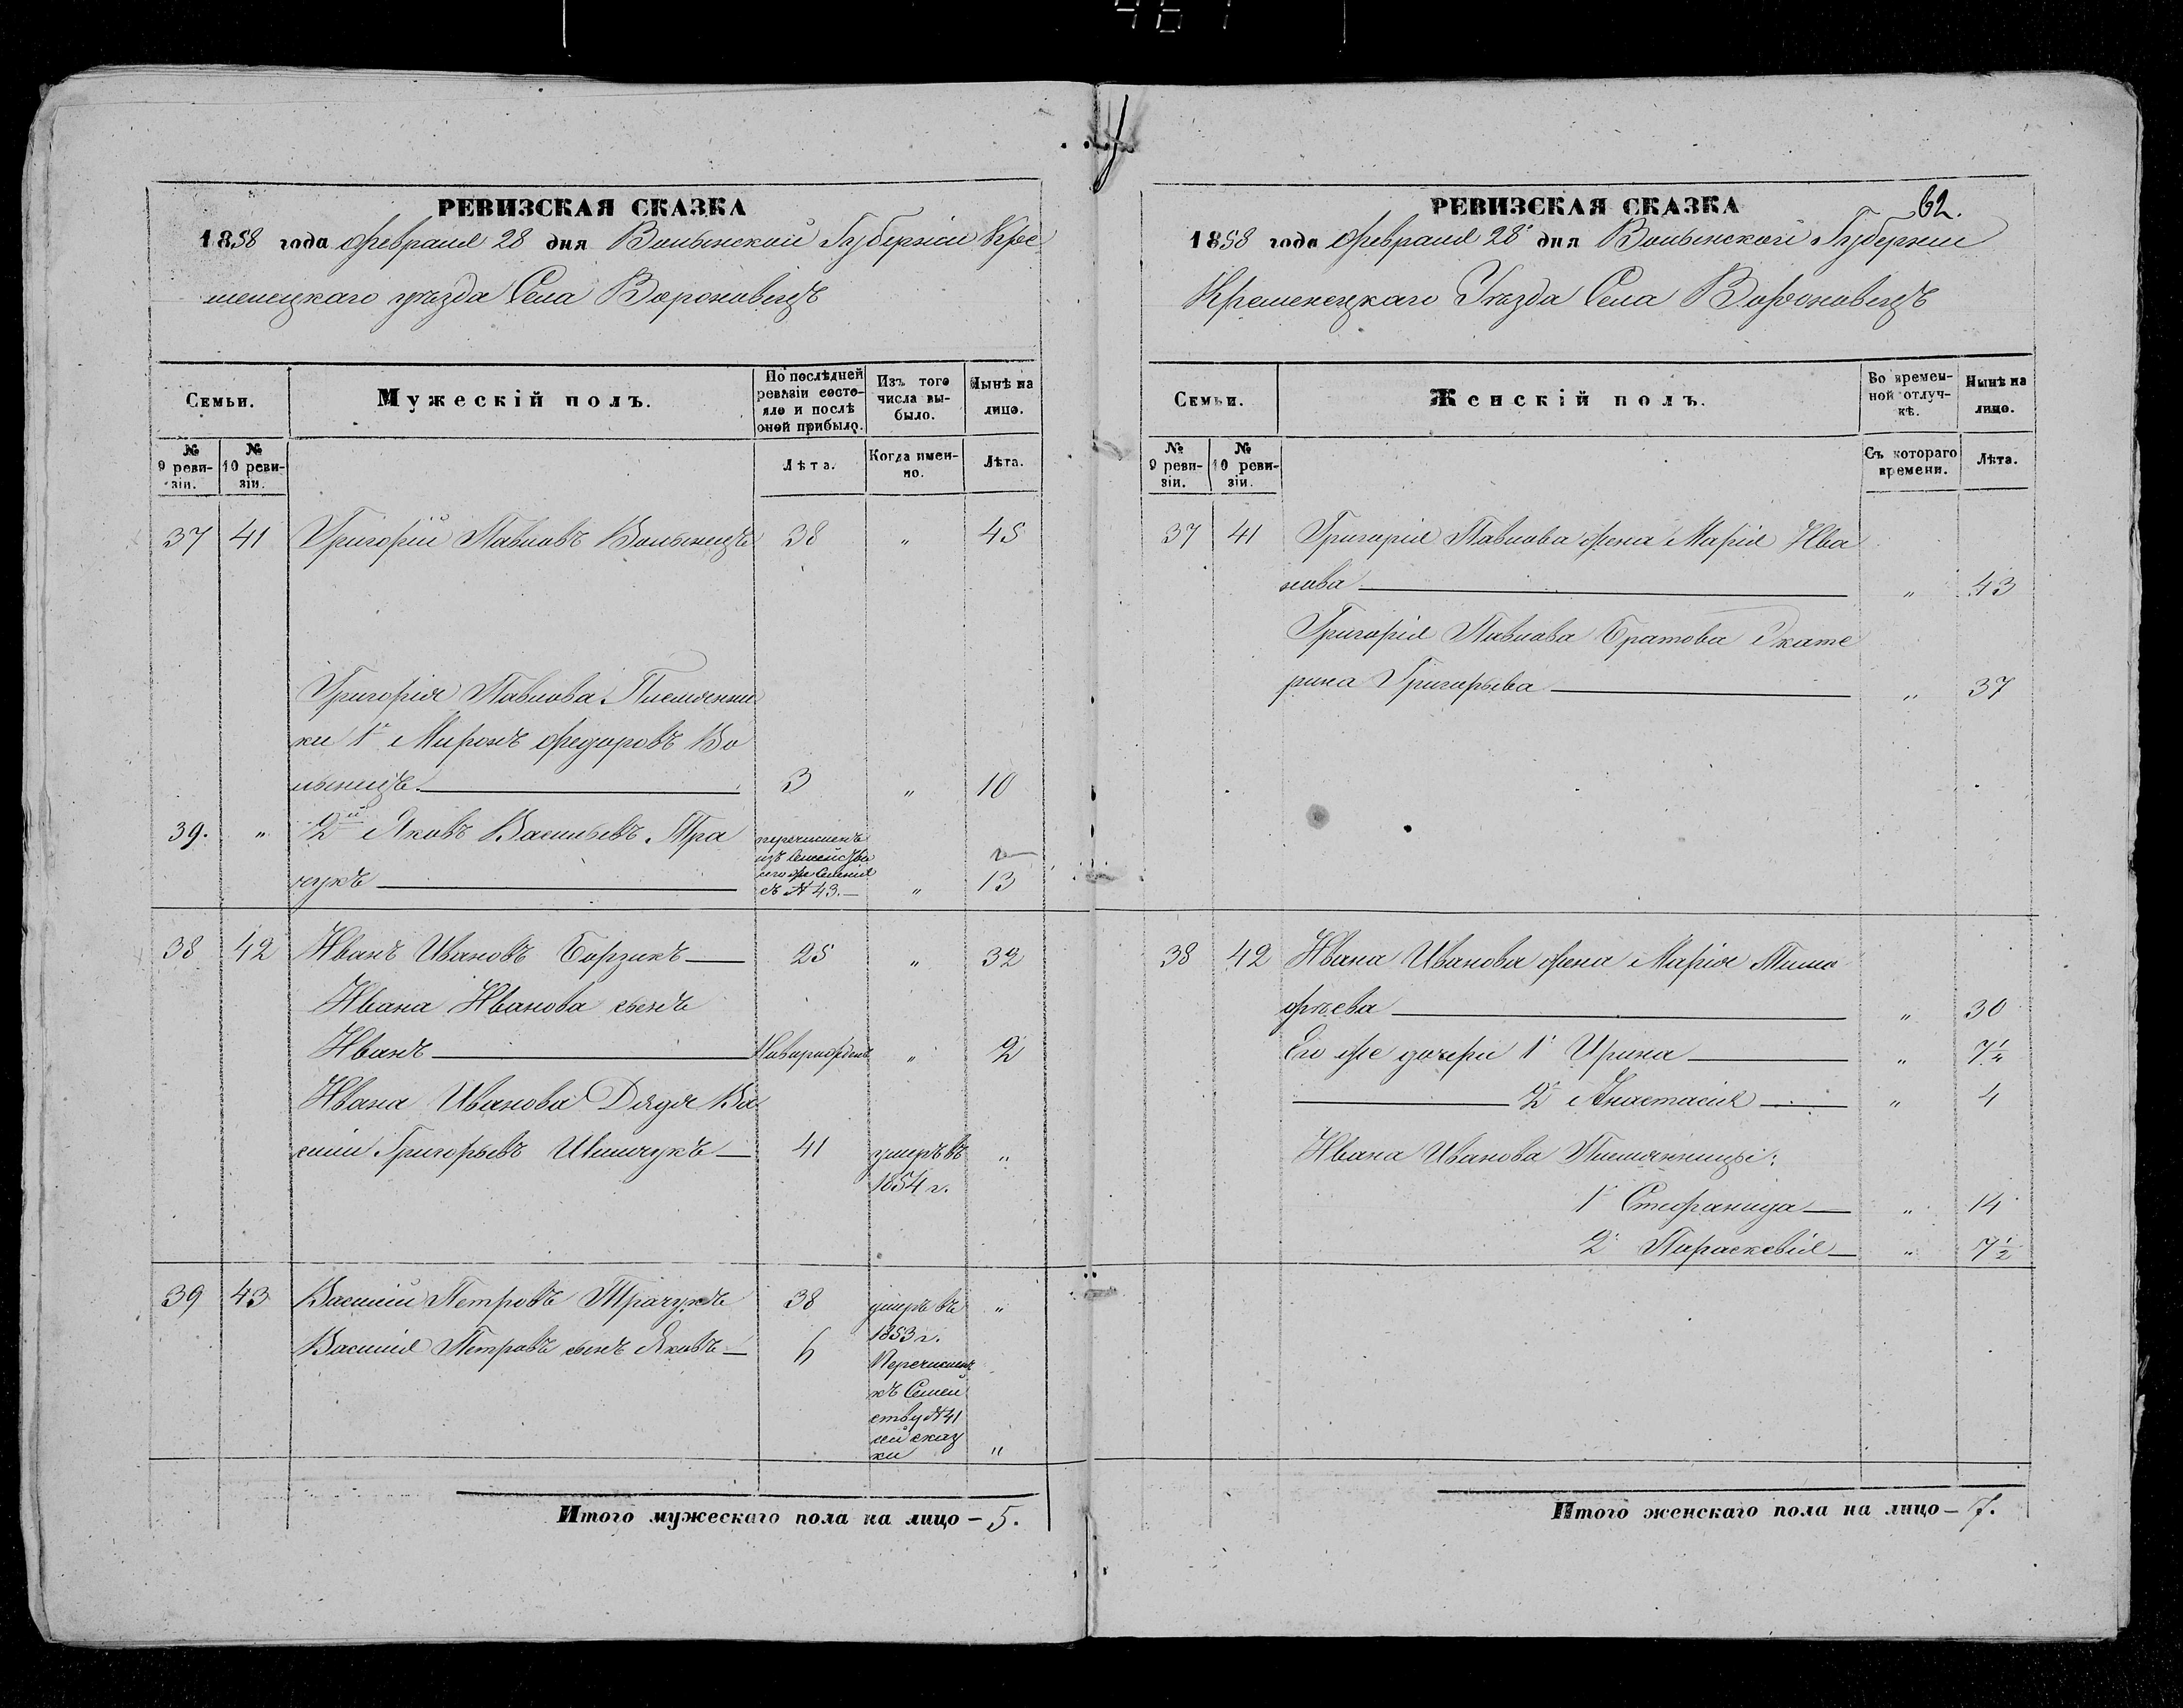 467
РЕВИЗСКАЯ СКАЗКА
1858 года февраля 28 дня Волынской Губерніи Кре
менецкаго уѣзда Села Вороновецъ
Семьи.
Мужескій полъ.
По послѣдней ревизіи состояло и послѣ оной прибыло.
Изъ того числа выбыло.
Нынѣ на лицо.
№ 9 ревизіи.
№ 10 ревизіи.
Лѣта.
Когда именно.
Лѣта.
37 41 Григорій Павловъ Волынецъ 38 " 45
Григорія Павлова Племянни
ки 1й Миронъ Федоровъ Во
лынецъ 3 " 10
39. " 2й Яковъ Васильевъ Тра
чукъ
перечисленъ
изъ Семейства
сего же Селенія
съ № 43. " 13
38 42 Иванъ Ивановъ Борзикъ 25 " 32
Ивана Иванова сынъ
Иванъ Новорожденъ " 2
Ивана Иванова Дядя Ва
силій Григорьевъ 41 умеръ въ "
1854 г.
39 43 Василій Петровъ Трачукъ 38 умеръ въ "
1853 г.
Василія Петровъ сынъ Яковъ 6
Перечисленъ
къ Семей
ству № 41
сей сказ
ки "
Итого мужескаго пола на лицо – 5.
62.
РЕВИЗСКАЯ СКАЗКА
1858 года февраля 28 дня Волынской Губерніи
Кременецкаго Уѣзда Села Вороновецъ
Семьи.
Женскій полъ.
Во временной отлучкѣ.
Нынѣ на лицо.
№ 9 ревизіи.
№ 10 ревизіи.
Съ котораго времени.
Лѣта.
37 41 Григорія Павлова жена Марія Ива
нова " 43
Григорія Павлова Братова Екате
рина Григорьева " 37
38 42 Ивана Иванова жена Марія Тимо
фѣева " 30
Его же дочери 1я Ирина " 7½
2я Анастасія " 4
Ивана Иванова Племянницы:
1я Стефанида " 14
2я Параскевія " 7½
Итого женскаго пола на лицо – 7.